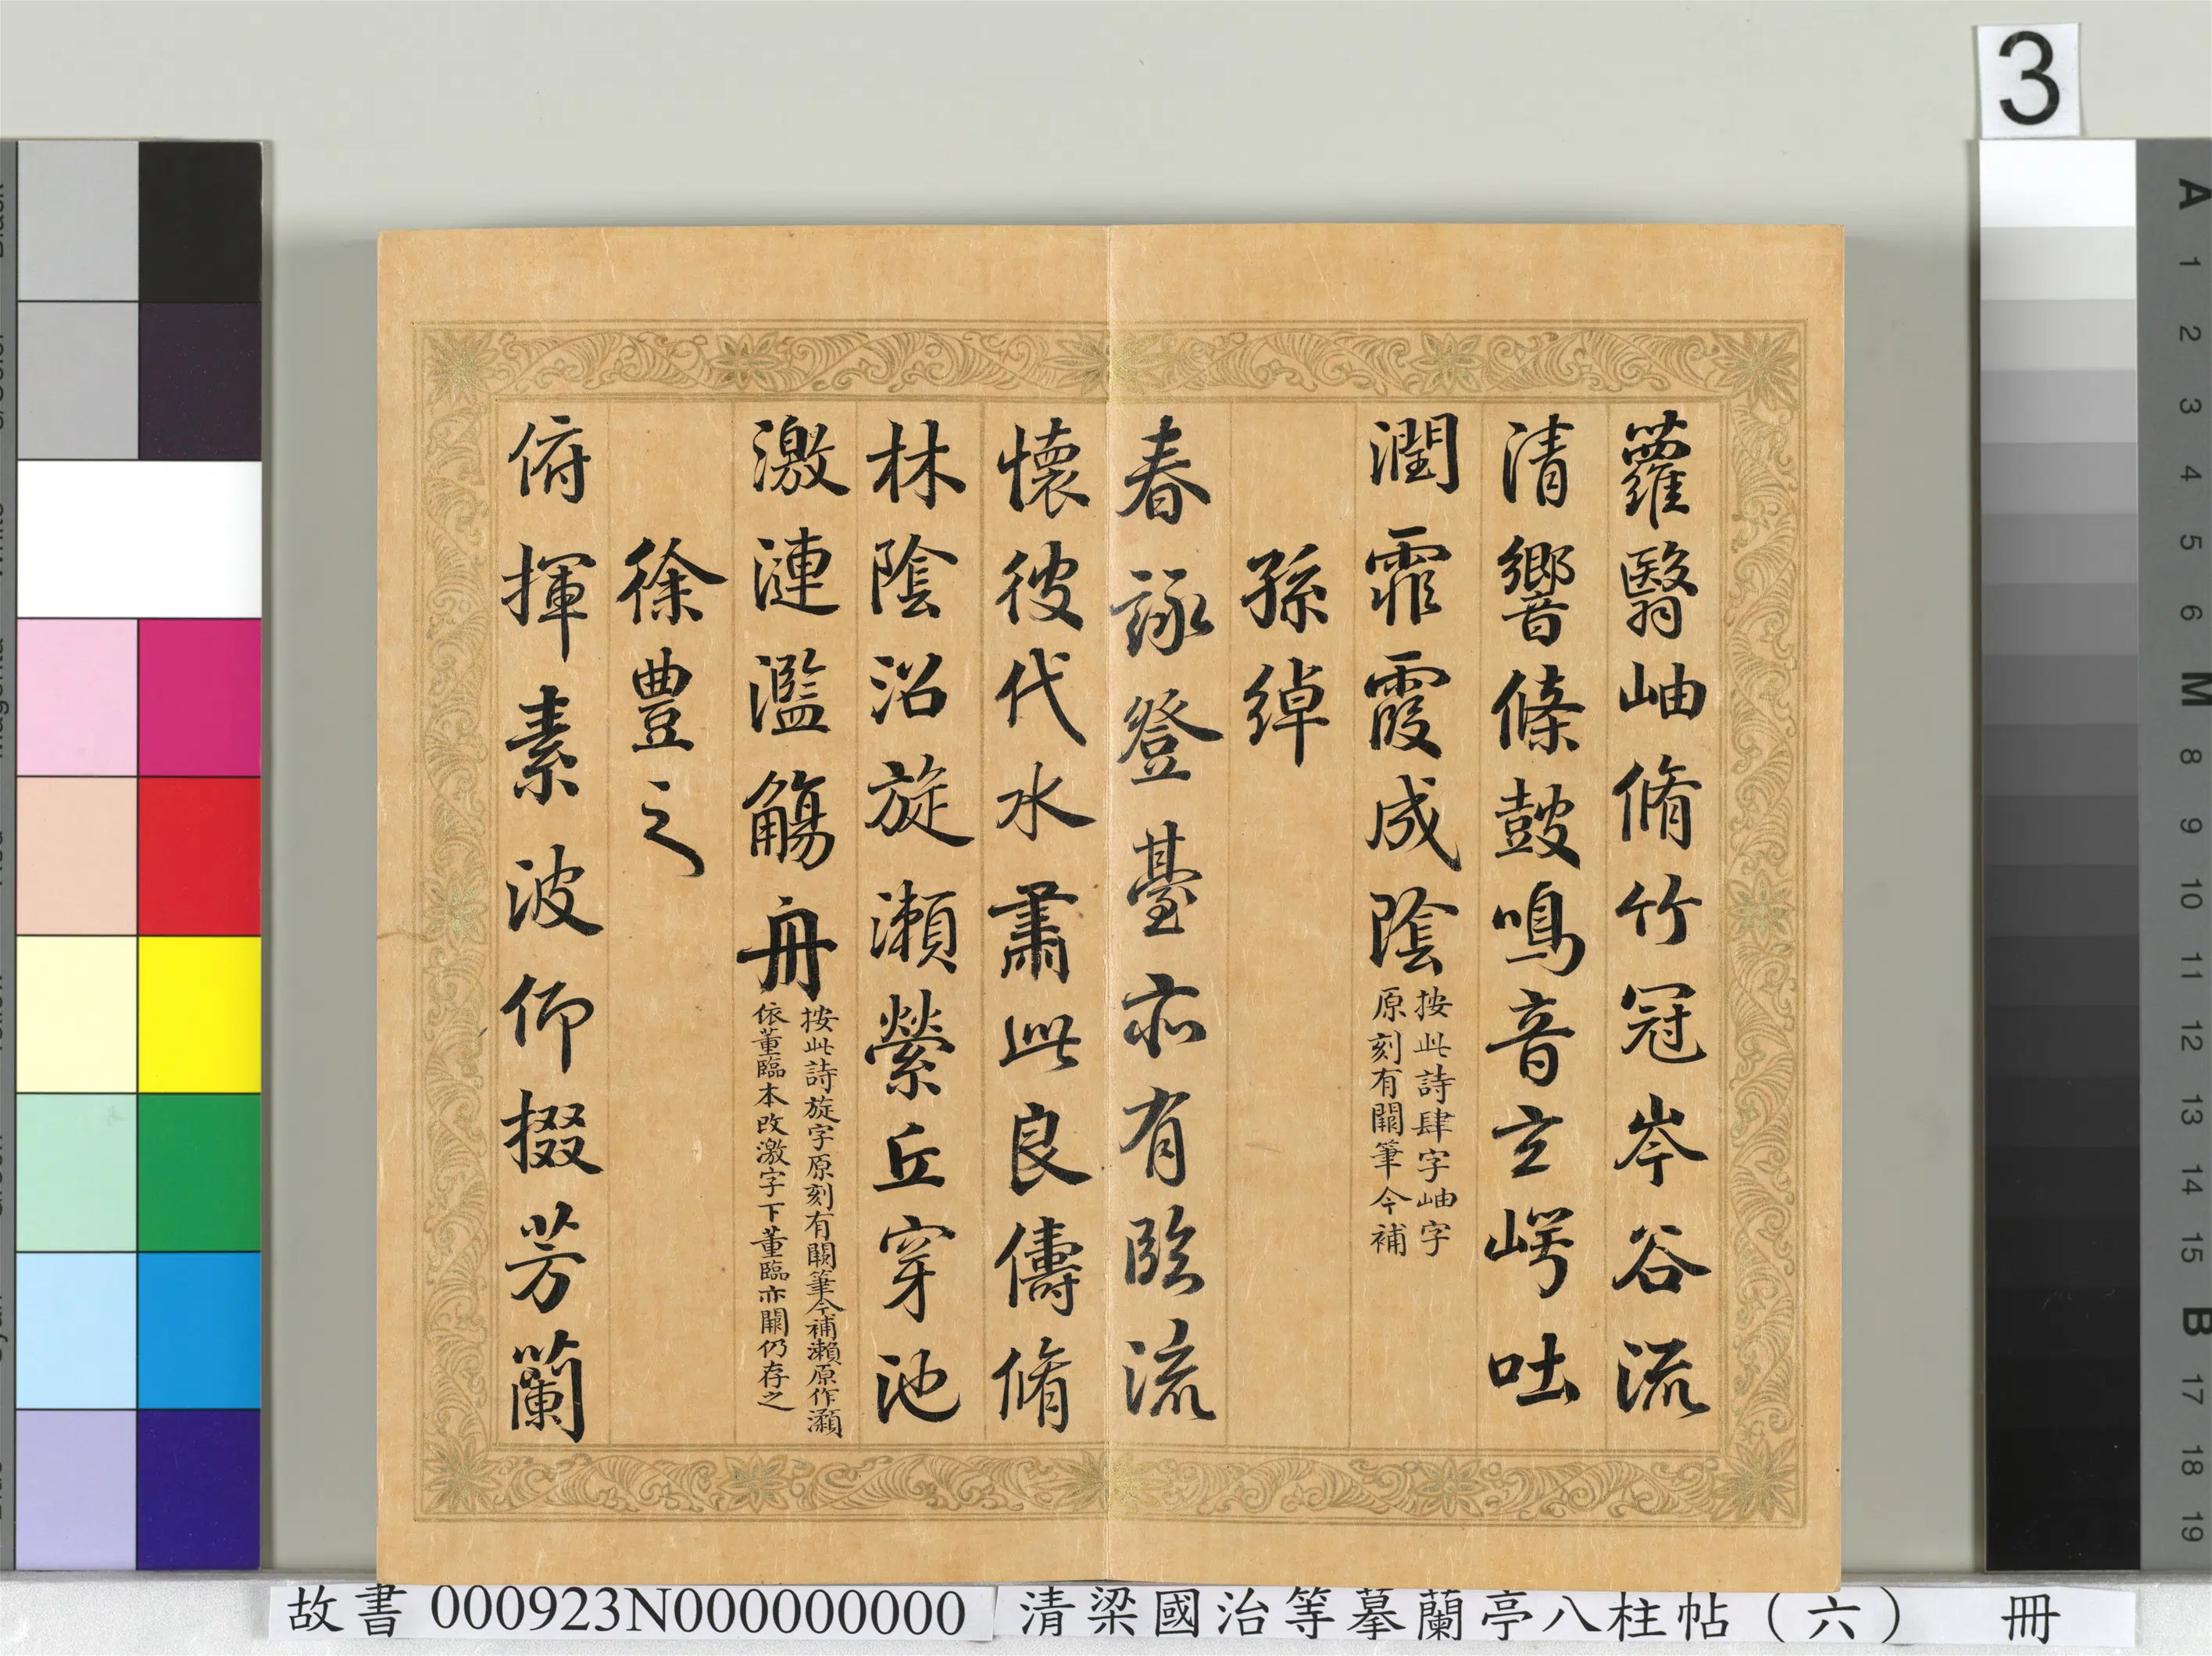 蘿翳岫脩竹冠岑谷流
清響條鼓鳴音玄崿吐
潤霏霧成陰
按此詩肆字岫字
原刻有闕筆今補
孫綽
春詠登臺亦有臨流
懷彼伐水肅此良儔脩
林陰沼旋瀨縈丘穿池
激漣濫觴舟
按此詩旋字原刻有闕筆今補瀨原作瀬
依董臨本改激字下董臨亦闕仍存之
徐豐之
俯揮素波仰掇芳蘭
3
A 1 2 3 4 5 6 M 8 9 10 11 12 13 14 15 B 17 18 19
故書 000923N000000000
清梁國治等摹蘭亭八柱帖（六） 冊